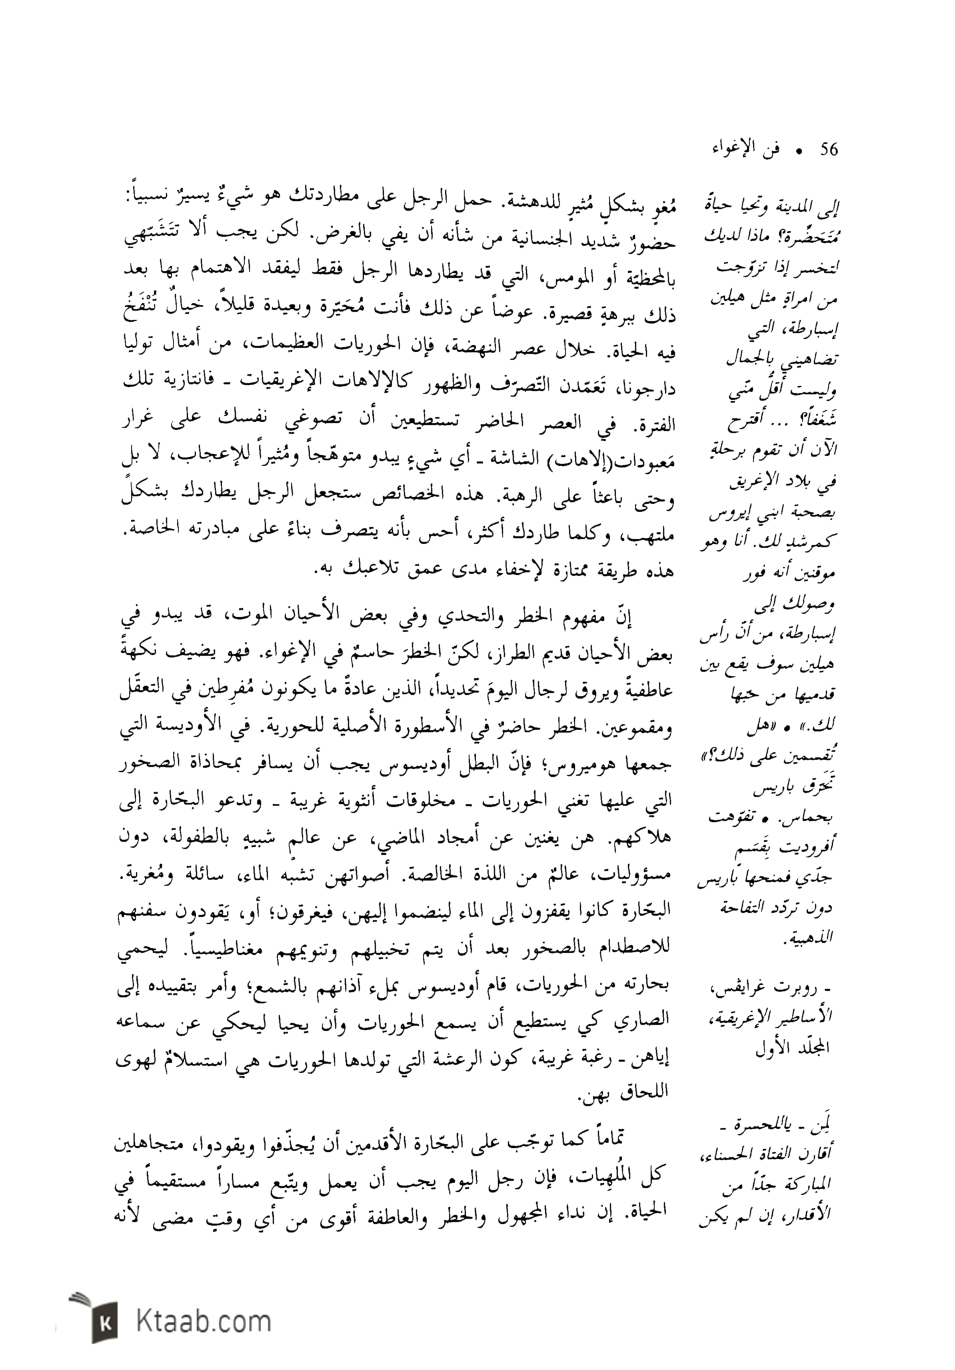 56 • فن الإغواء
إلى المدينة وتحيا حياةً
مُتَحَضِّرة؟ ماذا لديك
لتخسر إذا تزوّجت
من امراةٍ مثل هيلين
إسبارطة، التي
تضاهيني بالجمال
وليست أقلُّ منّي
شَغَفاً؟ ... أقترح
الآن أن تقوم برحلةٍ
في بلاد الإغريق
بصحبة ابني إيروس
كمرشدٍ لك. أنا وهو
موقنين أنه فور
وصولك إلى
إسبارطة، من أنّ رأس
هيلين سوف يقع بين
قدميها من حبّها
لك.» • «هل
تُقسمين على ذلك؟»
تَحَرّق باريس
بحماس. • تفوّهت
أفروديت بِقَسَمٍ
جدّي فمنحها باريس
دون تردّد التفاحة
الذهبية.
ـ روبرت غرايڤس،
الأساطير الإغريقية،
المجلّد الأول
لِمَن ـ ياللحسرة ـ
أقارن الفتاة الحسناء،
المباركة جدّاً من
الأقدار، إن لم يكن
مُغوٍ بشكلٍ مُثيرٍ للدهشة. حمل الرجل على مطاردتك هو شيءٌ يسيرٌ نسبياً:
حضورٌ شديد الجنسانية من شأنه أن يفي بالغرض. لكن يجب ألا تتَشَبّهي
بالمحظيّة أو المومس، التي قد يطاردها الرجل فقط ليفقد الاهتمام بها بعد
ذلك ببرهةٍ قصيرة. عوضاً عن ذلك فأنت مُحَيّرة وبعيدة قليلاً، خيالٌ تُنْفَخُ
فيه الحياة. خلال عصر النهضة، فإن الحوريات العظيمات، من أمثال توليا
دارجونا، تَعَمّدن التّصرّف والظهور كالإلاهات الإغريقيات ـ فانتازية تلك
الفترة. في العصر الحاضر تستطيعين أن تصوغي نفسك على غرار
مَعبودات(إلاهات) الشاشة ـ أي شيءٍ يبدو متوهّجاً ومُثيراً للإعجاب، لا بل
وحتى باعثاً على الرهبة. هذه الخصائص ستجعل الرجل يطاردك بشكلٍ
ملتهب، وكلما طاردك أكثر، أحس بأنه يتصرف بناءً على مبادرته الخاصة.
هذه طريقة ممتازة لإخفاء مدى عمق تلاعبك به.
إنّ مفهوم الخطر والتحدي وفي بعض الأحيان الموت، قد يبدو في
بعض الأحيان قديم الطراز، لكنّ الخطرَ حاسمٌ في الإغواء. فهو يضيف نكهةً
عاطفيةً ويروق لرجال اليومَ تحديداً، الذين عادةً ما يكونون مُفرِطين في التعقّل
ومقموعين. الخطر حاضرٌ في الأسطورة الأصلية للحورية. في الأوديسة التي
جمعها هوميروس؛ فإنّ البطل أوديسوس يجب أن يسافر بمحاذاة الصخور
التي عليها تغني الحوريات ـ مخلوقات أنثوية غريبة ـ وتدعو البحّارة إلى
هلاكهم. هن يغنين عن أمجاد الماضي، عن عالمٍ شبيهٍ بالطفولة، دون
مسؤوليات، عالمٌ من اللذة الخالصة. أصواتهن تشبه الماء، سائلة ومُغرية.
البحّارة كانوا يقفزون إلى الماء لينضموا إليهن، فيغرقون؛ أو، يَقودون سفنهم
للاصطدام بالصخور بعد أن يتم تخبيلهم وتنويمهم مغناطيسياً. ليحمي
بحارته من الحوريات، قام أوديسوس بملء آذانهم بالشمع؛ وأمر بتقييده إلى
الصاري كي يستطيع أن يسمع الحوريات وأن يحيا ليحكي عن سماعه
إياهن ـ رغبة غريبة، كون الرعشة التي تولدها الحوريات هي استسلامٌ لهوى
اللحاق بهن.
تماماً كما توجّب على البحّارة الأقدمين أن يُجذّفوا ويقودوا، متجاهلين
كل المُلهِيات، فإن رجل اليوم يجب أن يعمل ويتّبع مساراً مستقيماً في
الحياة. إن نداء المجهول والخطر والعاطفة أقوى من أي وقتٍ مضى لأنه
Ktaab.com